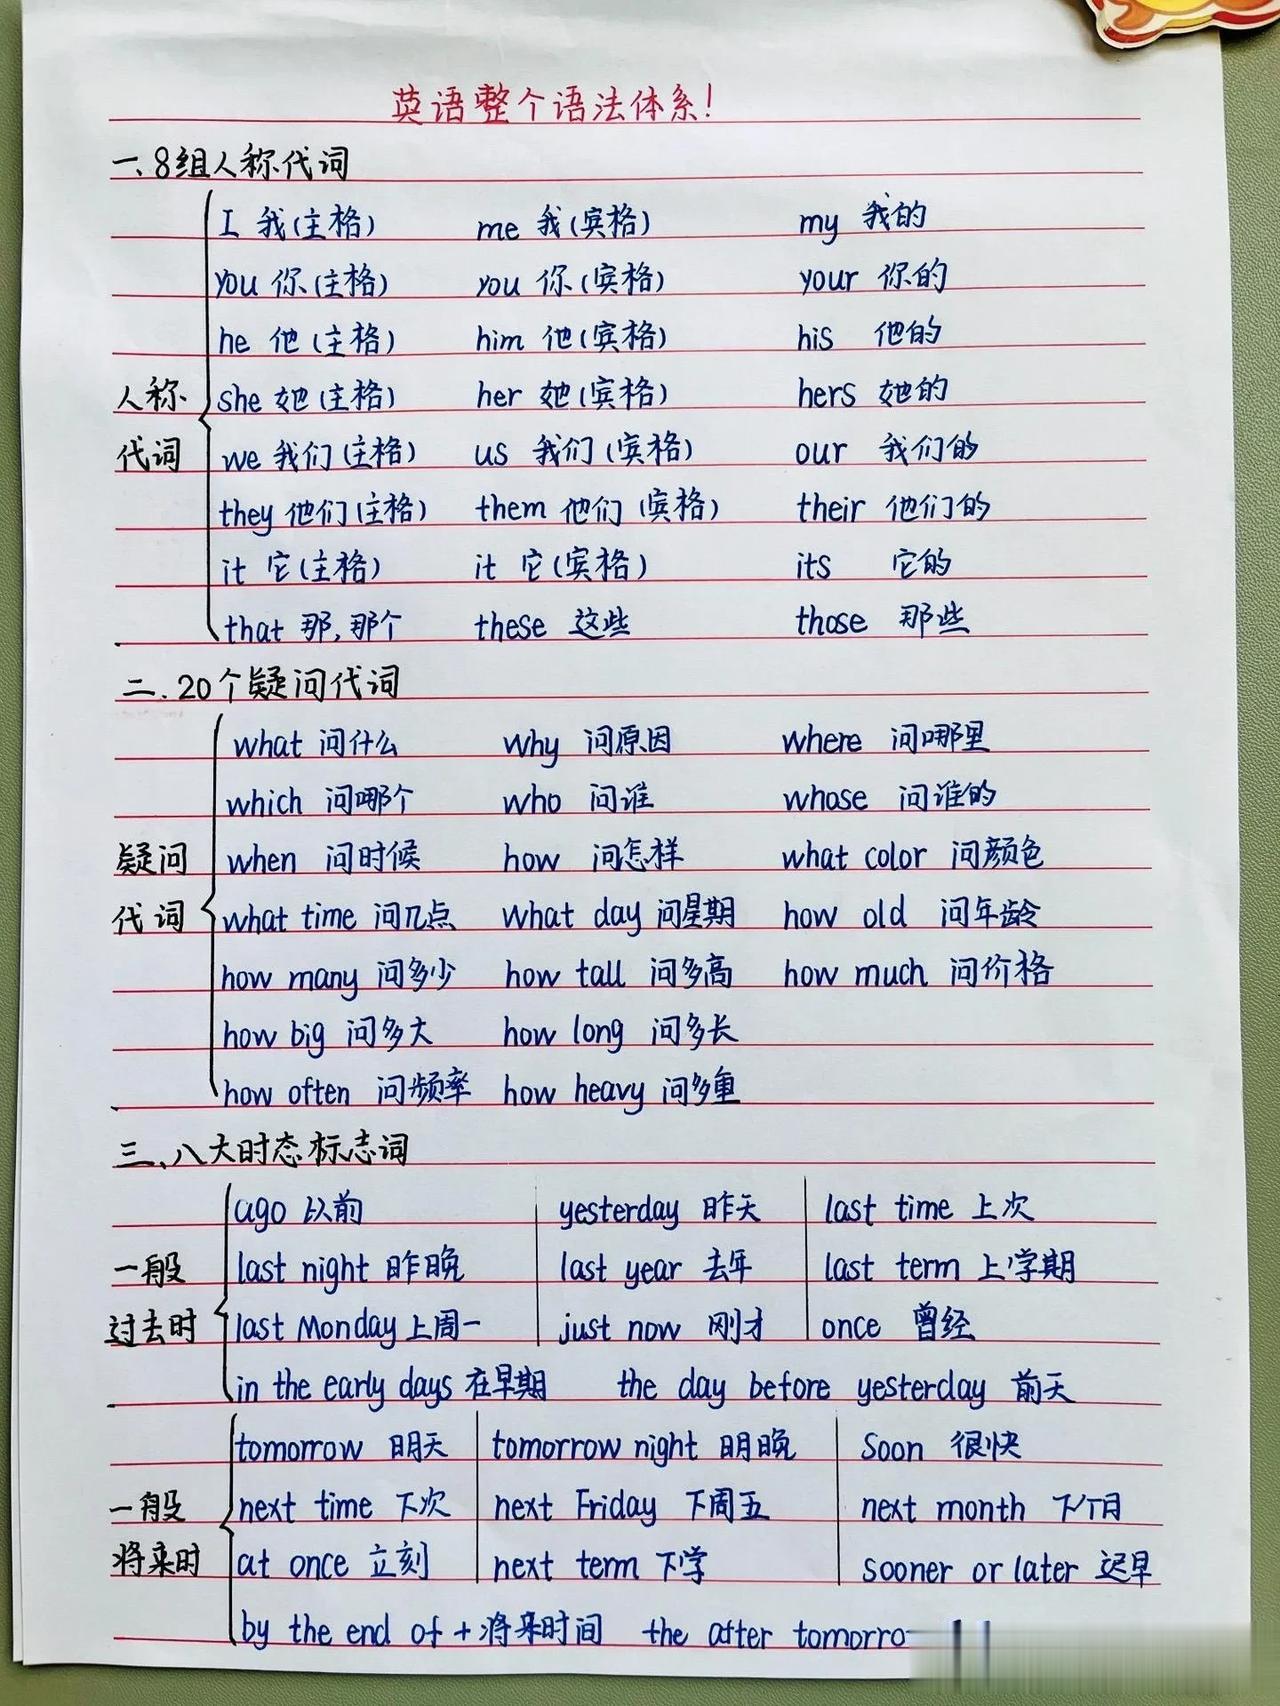 英语整个语法体系!
一、8组人称代词
I 我(主格) me 我(宾格) my 我的
you 你(主格) you 你(宾格) your 你的
he 他(主格) him 他(宾格) his 他的
人称 she 她(主格) her 她(宾格) hers 她的
代词 we 我们(主格) us 我们(宾格) our 我们的
they 他们(主格) them 他们(宾格) their 他们的
it 它(主格) it 它(宾格) its 它的
that 那,那个 these 这些 those 那些
二.20个疑问代词
what 问什么 why 问原因 where 问哪里
which 问哪个 who 问谁 whose 问谁的
疑问 when 问时候 how 问怎样 what color 问颜色
代词 what time 问几点 what day 问星期 how old 问年龄
how many 问多少 how tall 问多高 how much 问价格
how big 问多大 how long 问多长
how often 问频率 how heavy 问多重
三、八大时态标志词
ago 以前 yesterday 昨天 last time 上次
一般 last night 昨晚 last year 去年 last term 上学期
过去时 last Monday 上周一 just now 刚才 once 曾经
in the early days 在早期 the day before yesterday 前天
tomorrow 明天 tomorrow night 明晚 soon 很快
一般 next time 下次 next Friday 下周五 next month 下个月
将来时 at once 立刻 next term 下学 sooner or later 迟早
by the end of + 将来时间 the after tomorro